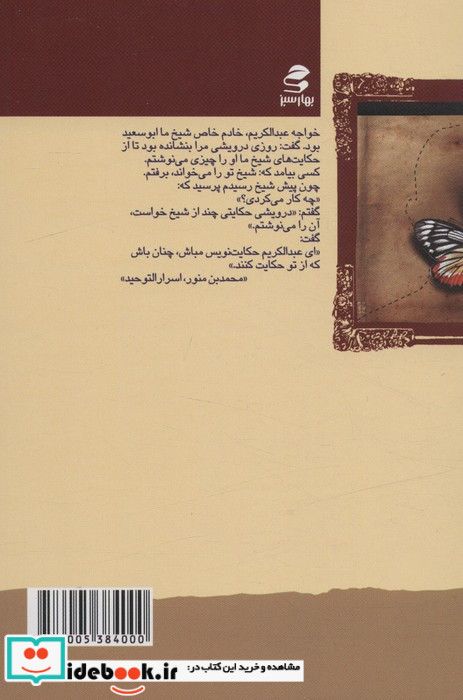 بهار سبز
خواجه عبدالکریم، خادم خاص شیخ ما ابوسعید
بود. گفت: روزی درویشی مرا بنشانده بود تا از
حکایت‌های شیخ ما او را چیزی می‌نوشتم.
کسی بیامد که: شیخ تو را می‌خواند، برفتم.
چون پیش شیخ رسیدم پرسید که:
«چه کار می‌کردی؟»
گفتم: «درویشی حکایتی چند از شیخ خواست،
آن را می‌نوشتم.»
گفت:
«ای عبدالکریم حکایت‌نویس مباش، چنان باش
که از تو حکایت کنند.»
«محمدبن منور، اسرارالتوحید»
005 384000
idebook.ir
مشاهده و خرید این کتاب در: